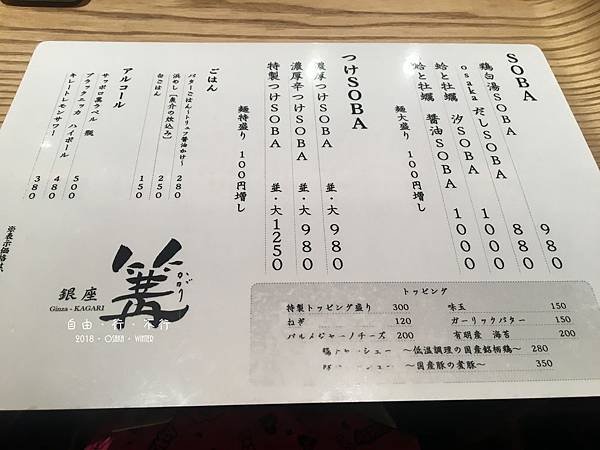 SOBA
鶏白湯SOBA 980
osakaだしSOBA 880
蛤と牡蠣 汐SOBA 1000
蛤と牡蠣 醤油SOBA 1000
麺大盛り 100円増し
つけSOBA
濃厚つけSOBA 並・大 980
濃厚辛つけSOBA 並・大 980
特製つけSOBA 並・大 1250
麺特盛り 100円増し
ごはん
バターごはん〜トリュフ醤油かけ〜 280
浜めし(魚介の炊込み) 250
白ごはん 150
アルコール
サッポロ黒ラベル 瓶 500
ブラックニッカ ハイボール 480
キレートレモンサワー 380
トッピング
特製トッピング盛り 300
味玉 150
ねぎ 120
ガーリックバター 150
パルメジャーノチーズ 200
有明産 海苔 200
シュー 〜低温調理の国産銘柄鶏〜 280
シュー 〜国産豚の煮豚〜 350
篝
かがり
銀座
Ginza - KAGARI
自由・行・不行
2018 · OSAKA · WINTER
※表示価格は